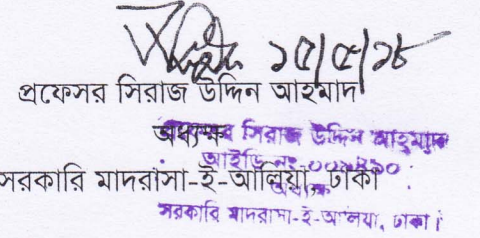 ১৫/৫/১৮
প্রফেসর সিরাজ উদ্দিন আহমাদ
অধ্যক্ষ
সরকারি মাদরাসা-ই-আলিয়া, ঢাকা
সিরাজ উদ্দিন আহমাদ
আইডি নং-
সরকারি মাদরাসা-ই-আলিয়া, ঢাকা।